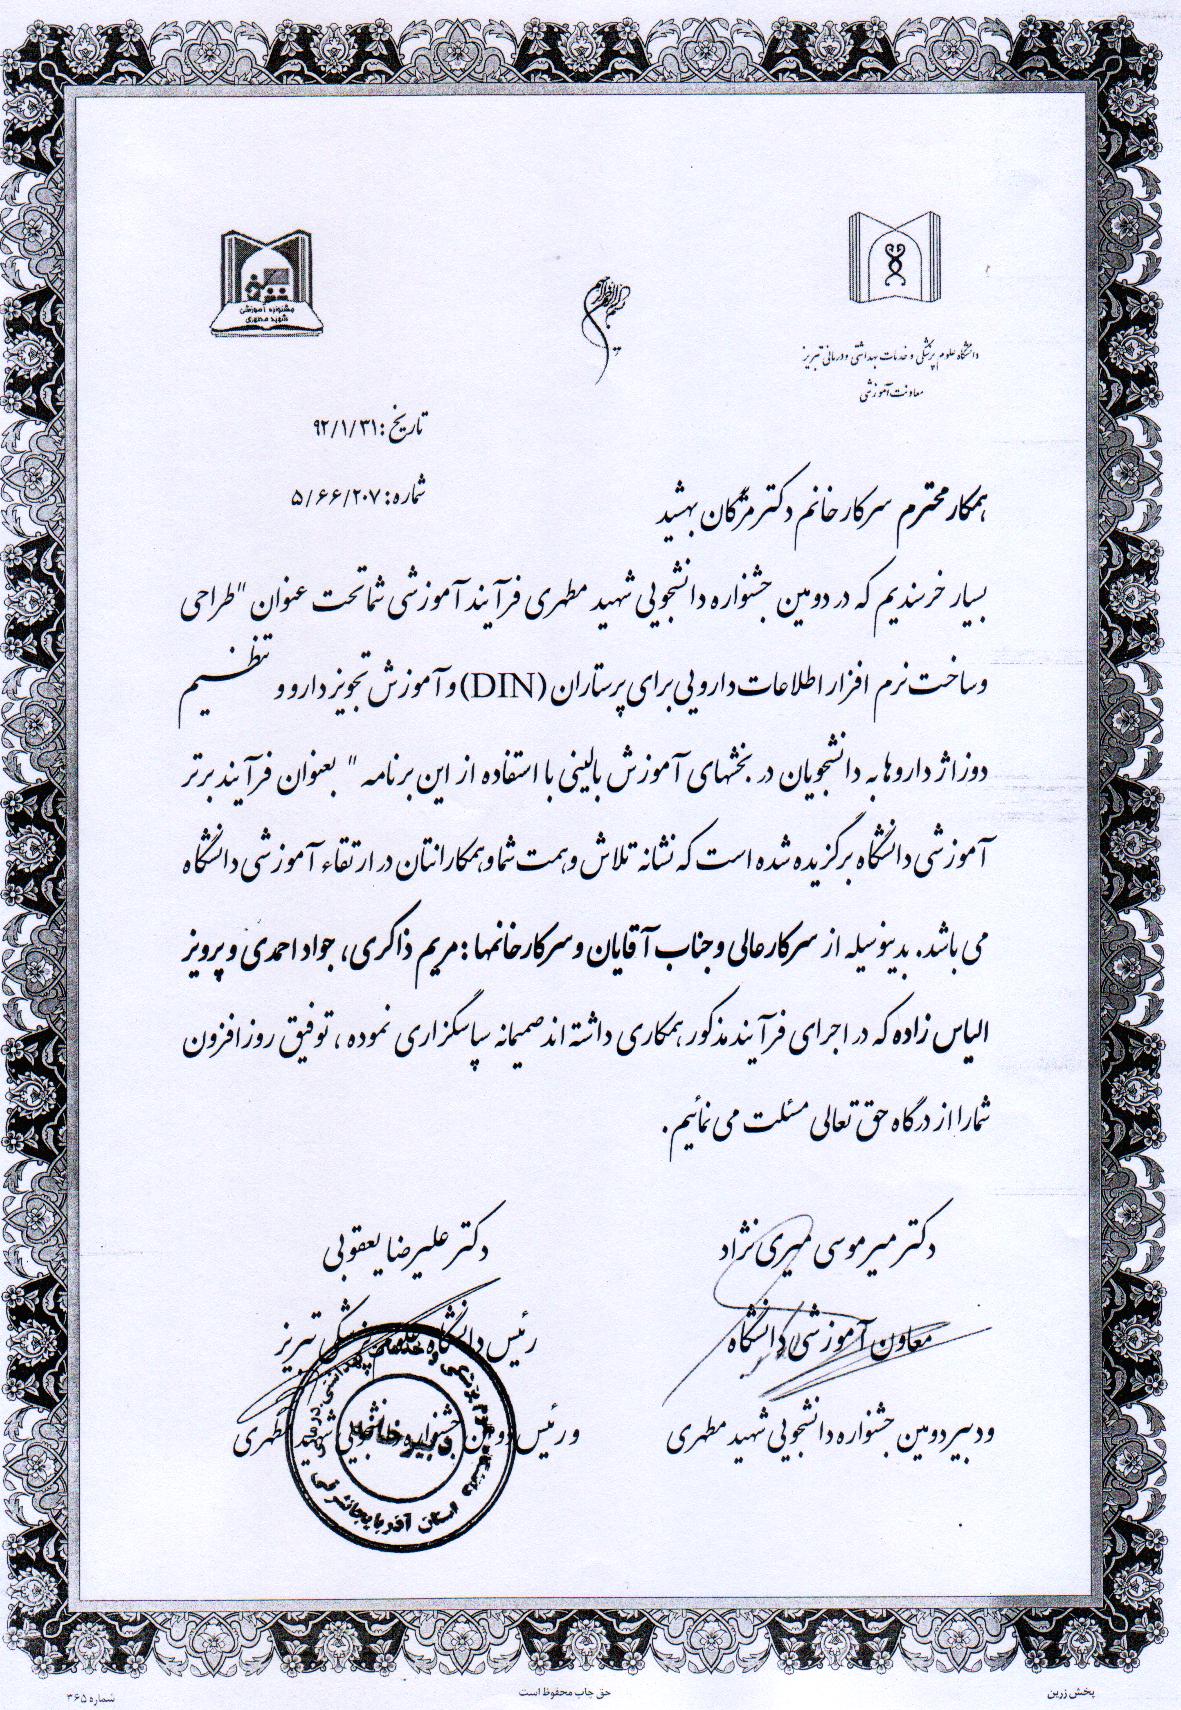 جشنواره آموزشی
شهید مطهری
دانشگاه علوم پزشکی و خدمات بهداشتی و درمانی تبریز
معاونت آموزشی
تاریخ : ۹۲/۱/۳۱
شماره : ۵/۶۶/۲۰۷
همکار محترم سرکار خانم دکتر مژگان بهشید
بسیار خرسندیم که در دومین جشنواره دانشجویی شهید مطهری فرآیند آموزشی شما تحت عنوان "طراحی
و ساخت نرم افزار اطلاعات دارویی برای پرستاران (DIN) و آموزش تجویز دارو و تنظیم
دوزاژ داروها به دانشجویان در بخشهای آموزش بالینی با استفاده از این برنامه " بعنوان فرآیند برتر
آموزشی دانشگاه برگزیده شده است که نشانه تلاش و همت شما و همکارانتان در ارتقاء آموزشی دانشگاه
می باشد. بدینوسیله از سرکار عالی و جناب آقایان و سرکار خانمها : مریم ذاکری، جواد احمدی و پرویز
الیاس زاده که در اجرای فرآیند مذکور همکاری داشته اند صمیمانه سپاسگزاری نموده ، توفیق روز افزون
شما را از درگاه حق تعالی مسئلت می نمائیم .
دکتر میر موسی میری نژاد
معاون آموزشی دانشگاه
و دبیر دومین جشنواره دانشجویی شهید مطهری
دکتر علیرضا یعقوبی
رئیس دانشگاه علوم پزشکی تبریز
و رئیس دومین جشنواره دانشجویی شهید مطهری
دانشگاه علوم پزشکی و خدمات بهداشتی درمانی
استان آذربایجانشرقی
دبیرخانه
پخش زرین
حق چاپ محفوظ است
شماره ۳۶۵